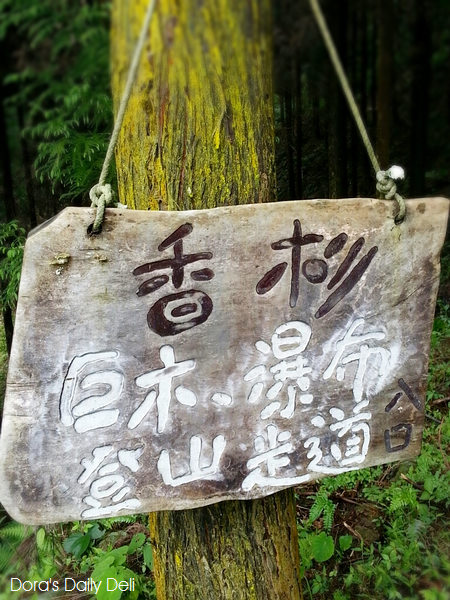 香杉
巨木、瀑布
登山步道
入口
Dora's Daily Deli